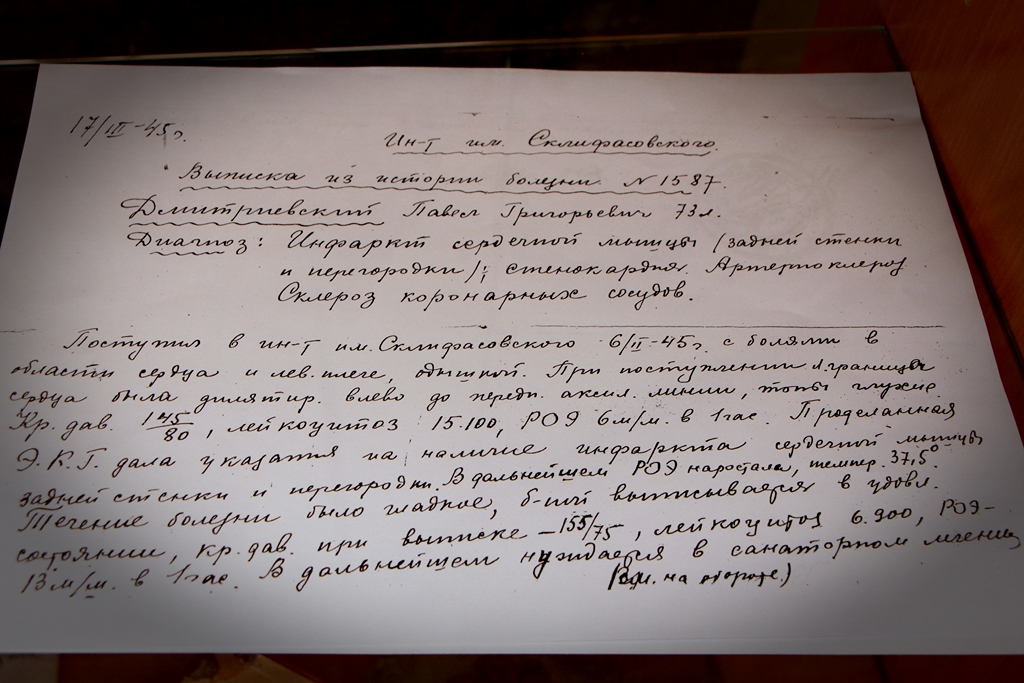 17/III-45г.
Ин-т им. Склифасовского.
Выписка из истории болезни N 1587.
Дмитриевский Павел Григорьевич 73л.
Диагноз: Инфаркт сердечной мышцы (задней стенки
и перегородки); стенокардия. Артериосклероз
Склероз коронарных сосудов.
Поступил в ин-т им. Склифасовского 6/II-45г. с болями в
области сердца и лев. плече, одышкой. При поступлении л. граница
сердца была дилятир. влево до передн. аксил. линии, тоны глухие.
Кр. дав. 145/80, лейкоцитоз 15.100, РОЭ 6 м/м. в 1 час. Проделанная
Э.К.Г. дала указания на наличие инфаркта сердечной мышцы
задней стенки и перегородки. В дальнейшем РОЭ наростала, темпер. 37,5°
Течение болезни было гладкое, б-ной выписывается в удовл.
состоянии, кр. дав. при выписке - 155/75, лейкоцитоз 6.900, РОЭ-
13 м/м. в 1 час. В дальнейшем нуждается в санаторном лечении
(См. на обороте.)